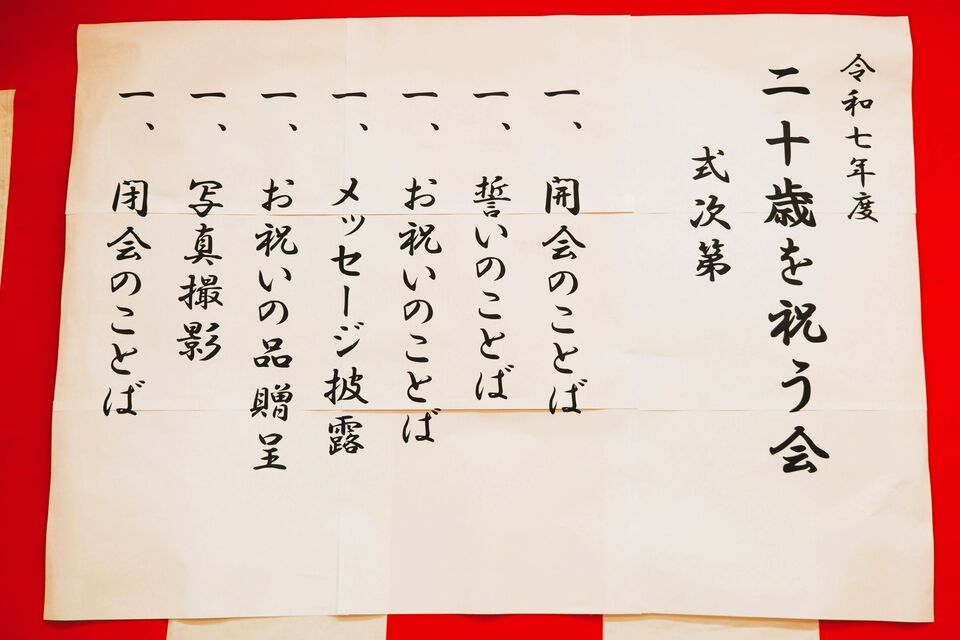 令和七年度
二十歳を祝う会
式次第
一、開会のことば
一、誓いのことば
一、お祝いのことば
一、メッセージ披露
一、お祝いの品贈呈
一、写真撮影
一、閉会のことば